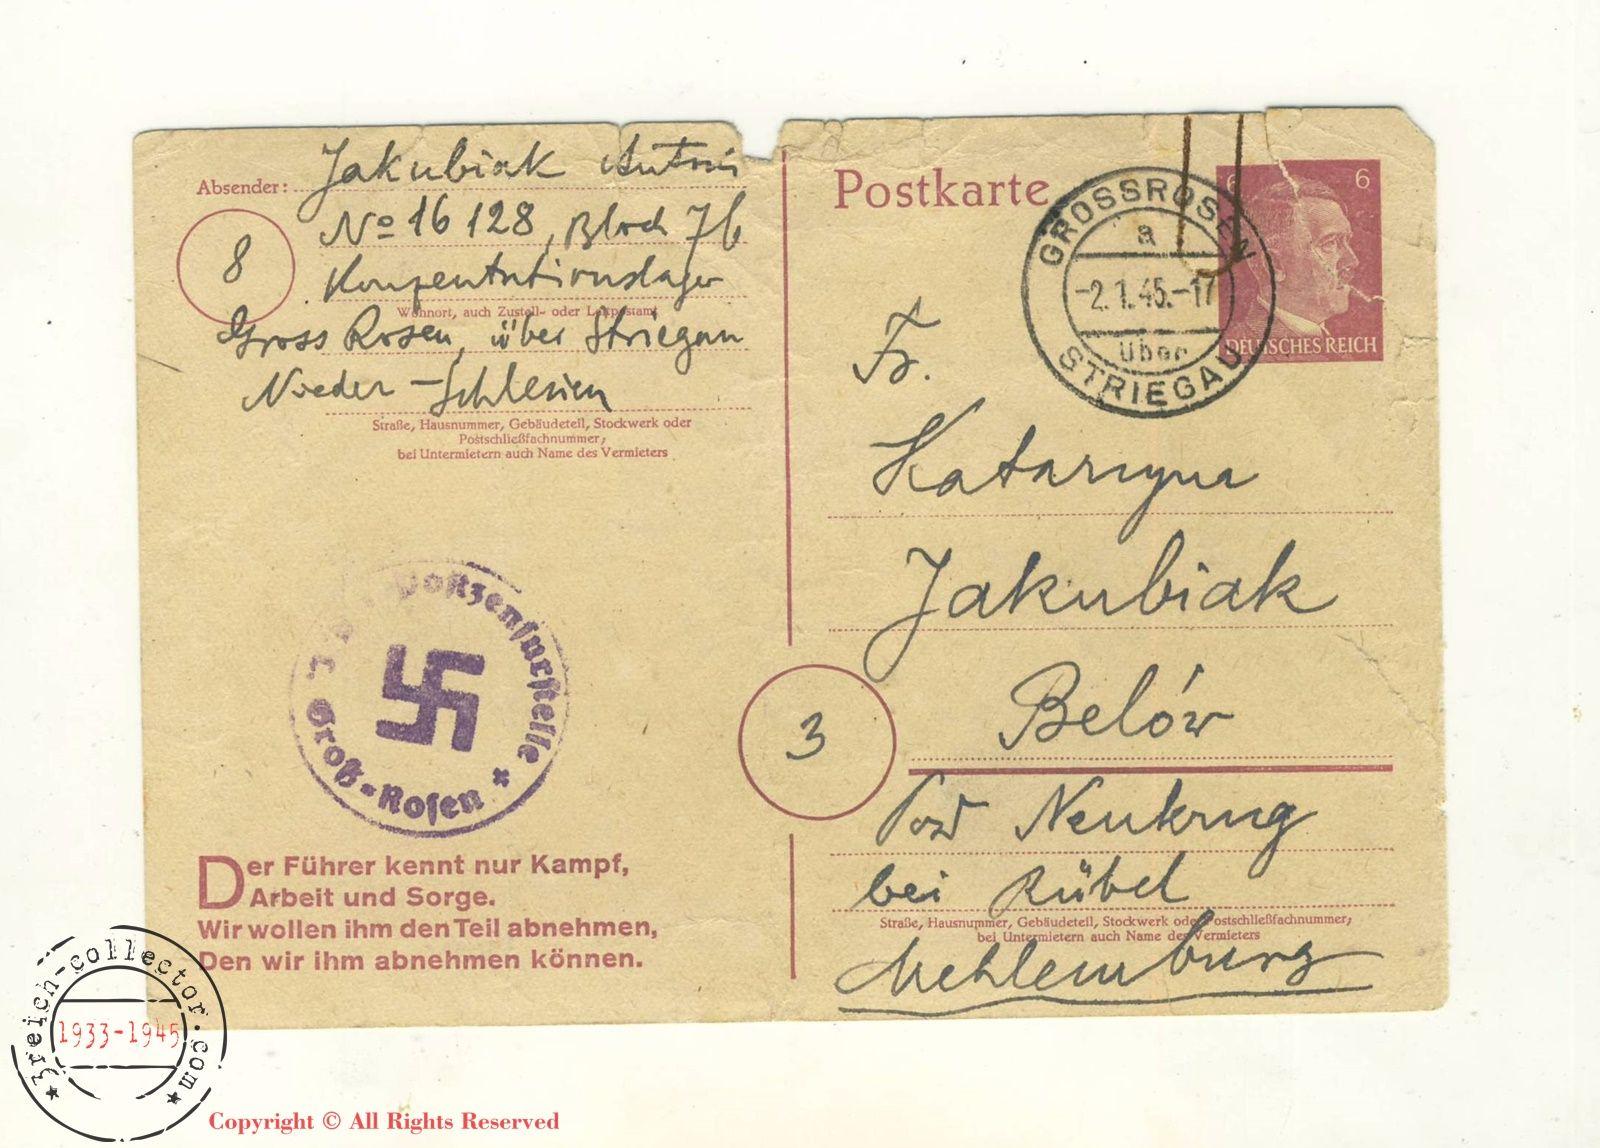 Absender: Jakubiak Antoni
No 16128, Block 7b
8
Konzentrationslager
Wohnort, auch Zustell- oder Leitpostamt
Gross Rosen, über Striegau
Nieder-Schlesien
Straße, Hausnummer, Gebäudeteil, Stockwerk oder
Postschließfachnummer,
bei Untermietern auch Name des Vermieters
Postzensurstelle
Groß-Rosen
Der Führer kennt nur Kampf,
Arbeit und Sorge.
Wir wollen ihm den Teil abnehmen,
Den wir ihm abnehmen können.
Postkarte
GROSSROSEN
a
-2.1.45.-17
über
STRIEGAU
6 6
DEUTSCHES REICH
Fr.
Katarzyna
Jakubiak
Belów
3
Post Neukrug
bei Rübel
Straße, Hausnummer, Gebäudeteil, Stockwerk oder Postschließfachnummer,
bei Untermietern auch Name des Vermieters
Mehlemburg
3reich-collector.com
1933-1945
Copyright © All Rights Reserved